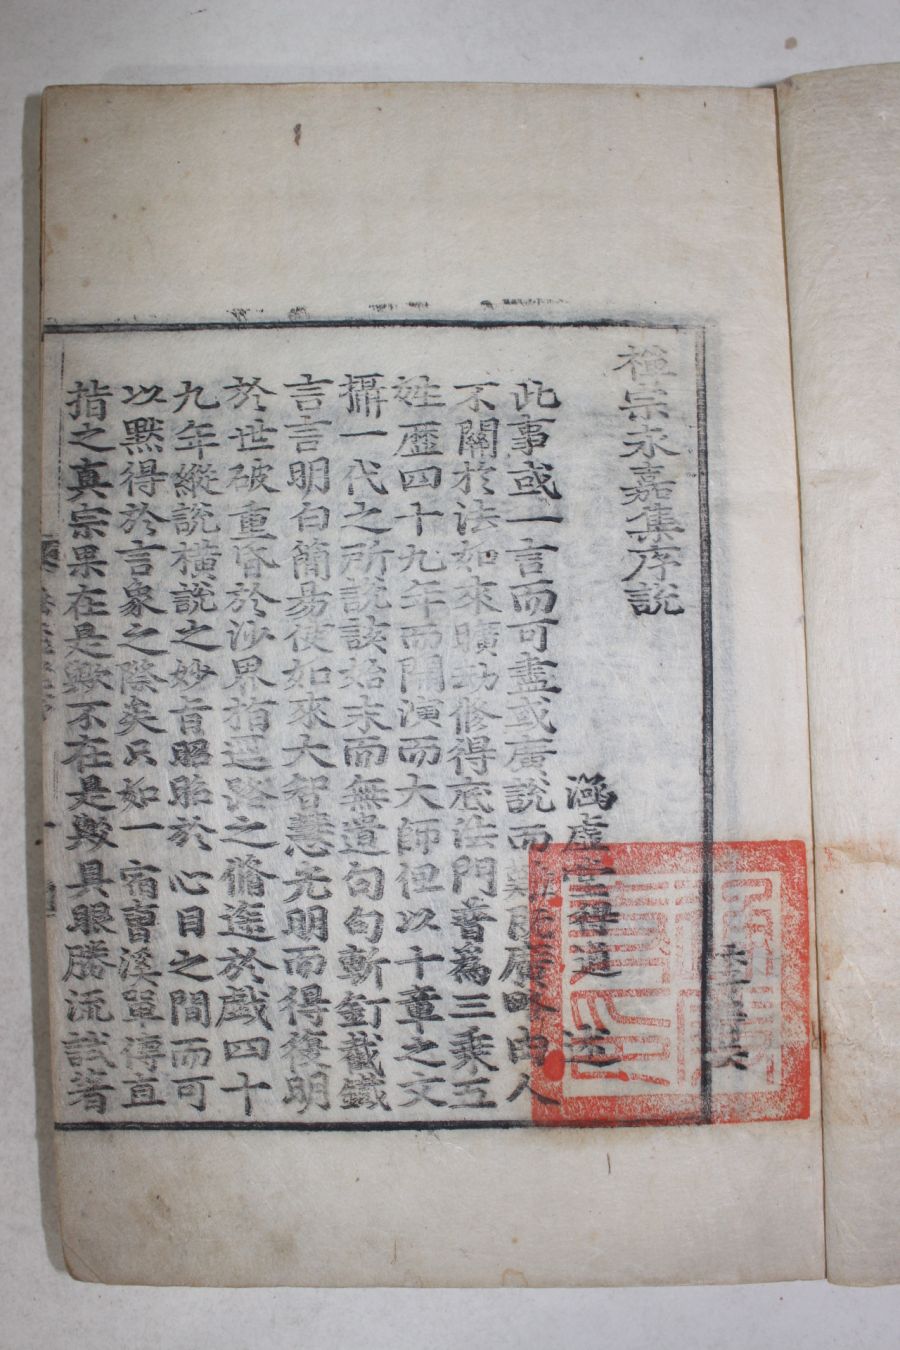 禪宗永嘉集序說
涵虛堂得通 述
此事或一言而可盡或廣說而難
不關於法如來曠劫修得底法門普爲三乘五
姓歷四十九年而開演而大師但以十章之文
攝一代之所說該始末而無遺句句斬釘截鐵
言言明白簡易使如來大智慧光明而得復明
於世破重昏於沙界指迷路之脩途於戲四十
九年縱說橫說之妙旨昭昭於心目之間而可
以默得於言象之際矣只如一宿曹溪單傳直
指之眞宗果在是歟不在是歟具眼勝流試著